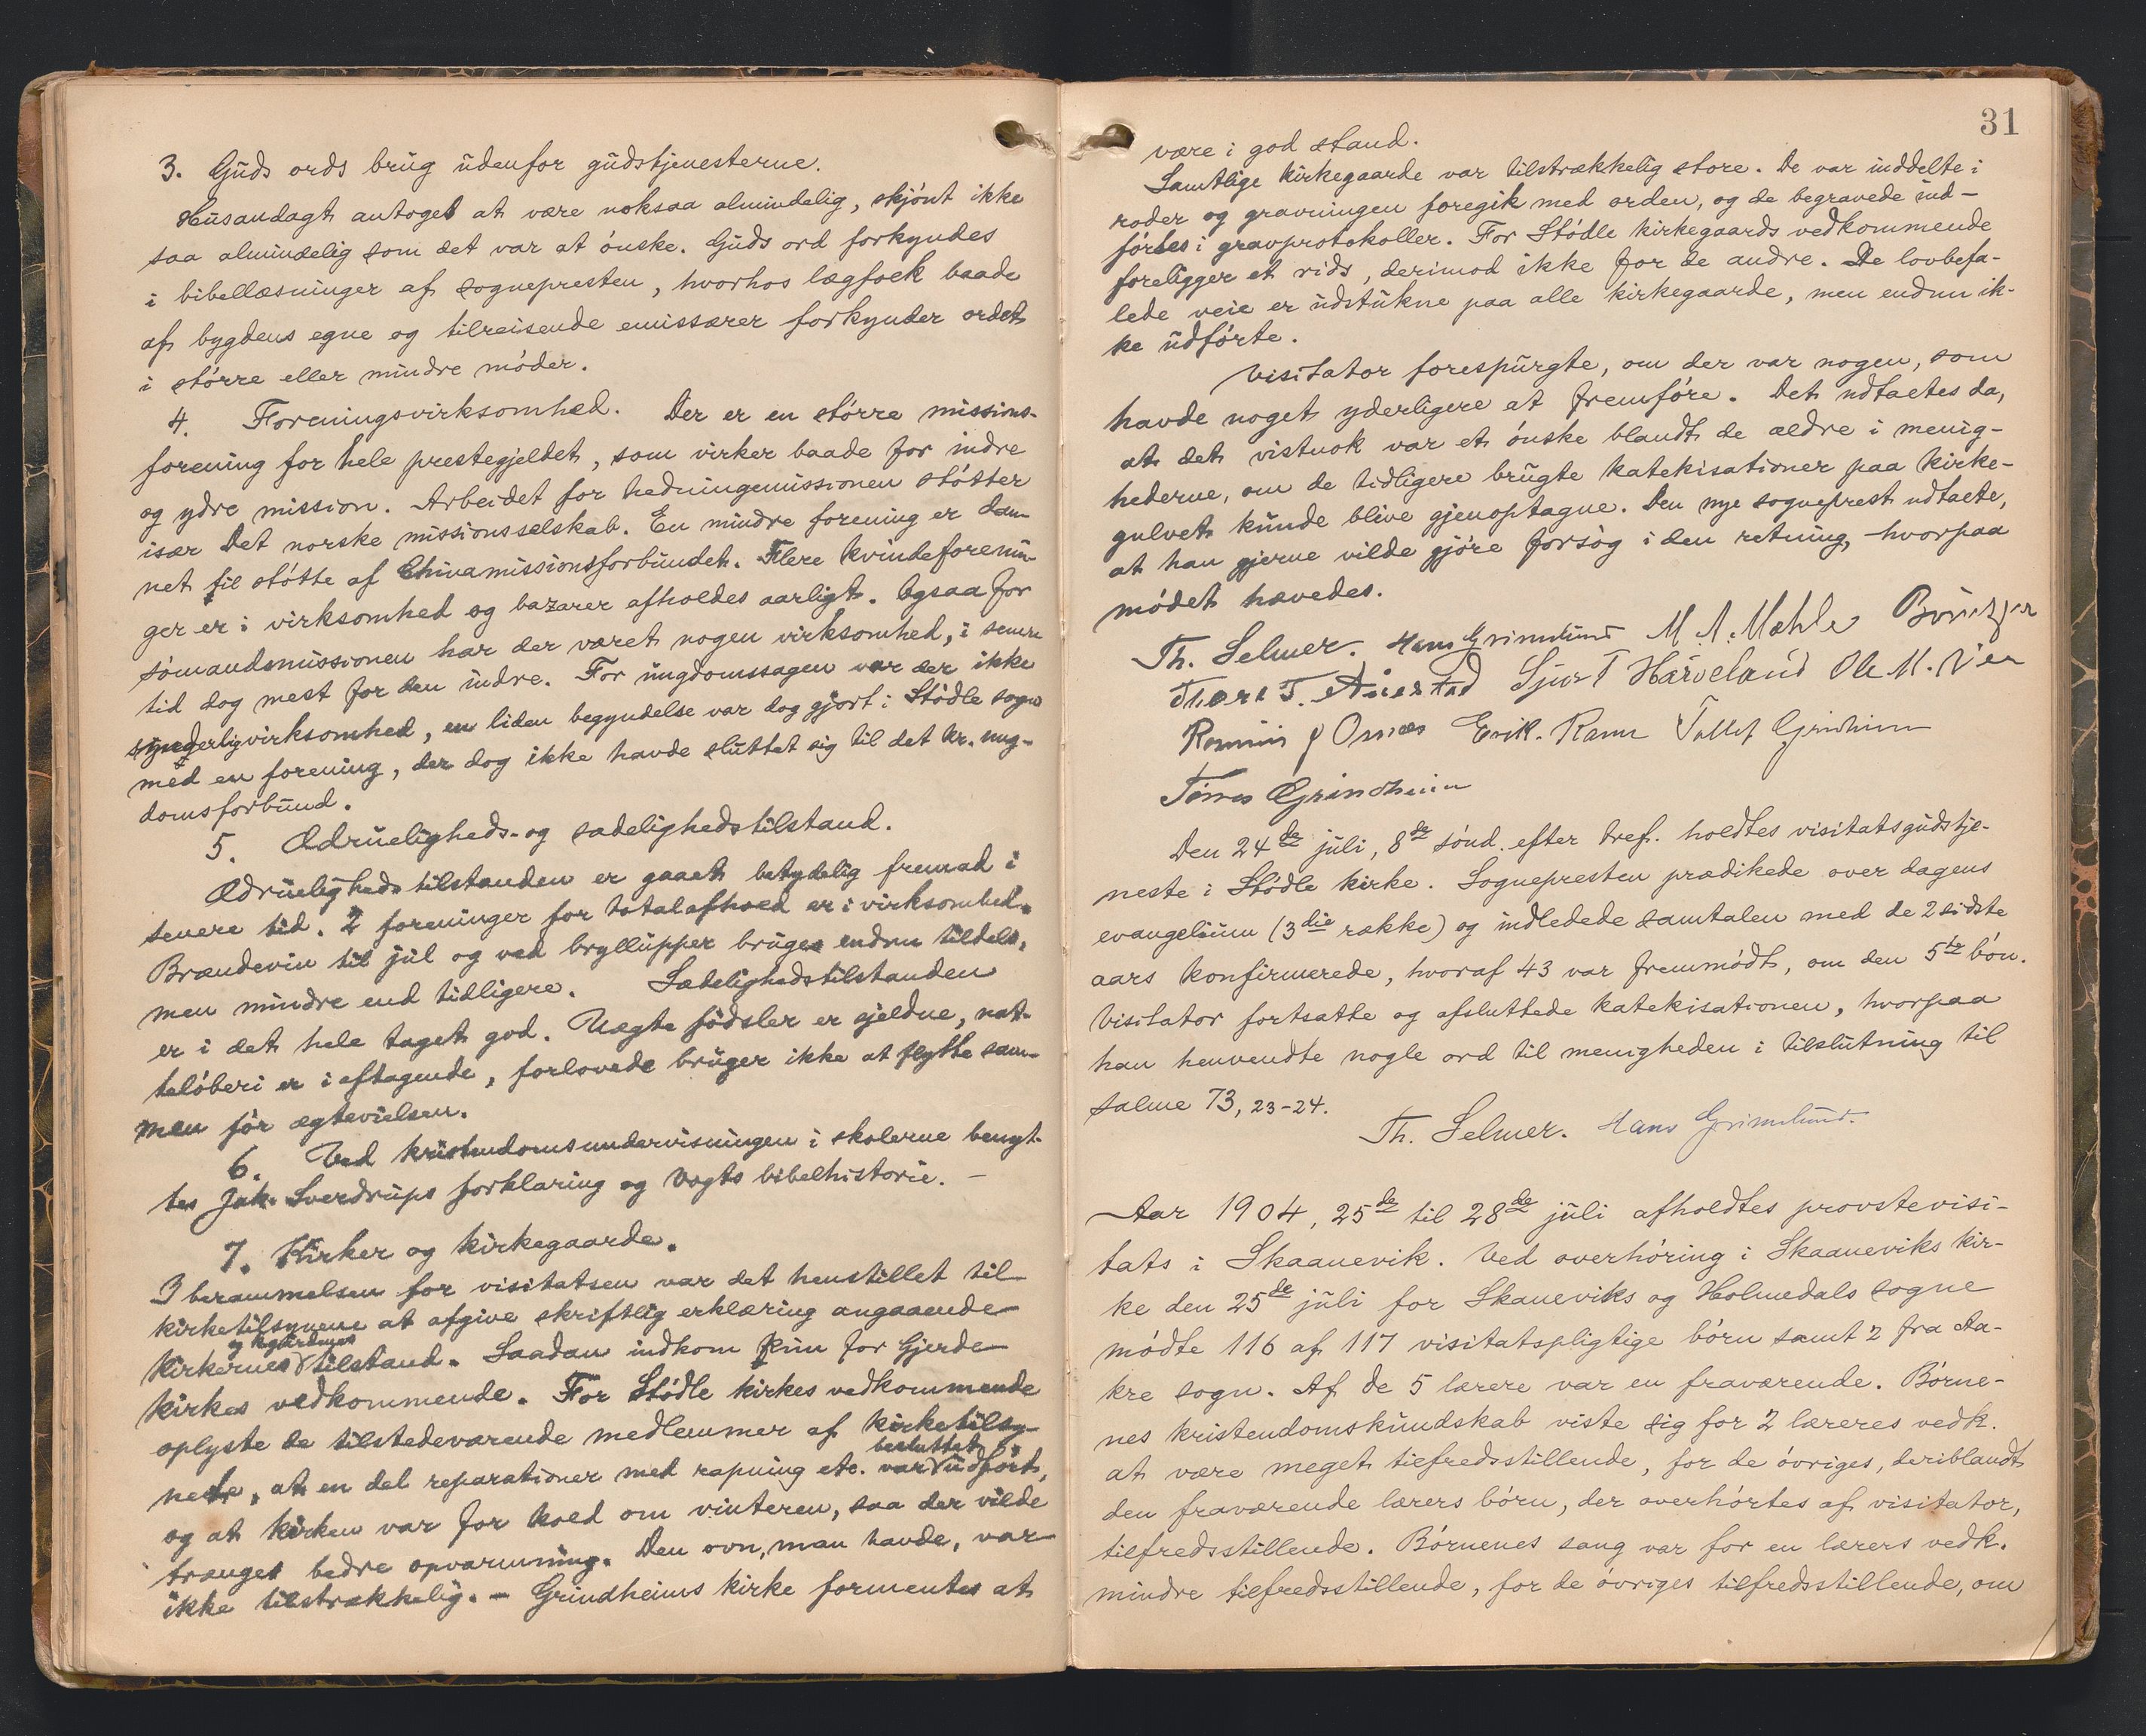 3. Guds ords brug udenfor gudstjenesterne.
Husandagt antoges at være noksaa almindelig, skjönt ikke
saa almindelig som det var at önske. Guds ord forkyndes
i bibellæsninger af sognepresten, hvorhos lægfolk baade
af bygdens egne og tilreisende emissærer forkynder ordet
i större eller mindre möder.
4. Foreningsvirksomhed. Der er en större missions-
forening for hele prestegjeldet, som virker baade for indre
og ydre mission. Arbeidet for hedningemissionen stötter
især Det norske missionsselskab. En mindre forening er dan-
net til stötte af Chinamissionsforbundet. Flere kvindeforenin-
ger er i virksomhed og bazarer afholdes aarligt. Ogsaa for
sömandsmissionen har der været nogen virksomhed, i senere
tid dog mest for den indre. For ungdomssagen var der ikke
synderlig virksomhed, en liden begyndelse var dog gjort i Stödle sogn
med en forening, der dog ikke havde sluttet sig til det kr. ung-
domsforbund.
5. Ædrueligheds- og sædelighedstilstand.
Ædruelighedstilstanden er gaaet betydelig fremad i
senere tid. 2 foreninger for totalafhold er i virksomhed.
Brændevin til jul og ved bryllupper bruges endnu tildels,
men mindre end tidligere. Sædelighedstilstanden
er i det hele taget god. Uægte födsler er sjeldne, nat-
telöberi er i aftagende, forlovede bruger ikke at flytte sam-
men för ægtevielsen.
6. Ved kristendomsundervisningen i skolerne benyt-
tes Jak. Sverdrups forklaring og Vogts bibelhistorie. -
7. Kirker og kirkegaarde.
I berammelsen for visitatsen var det henstillet til
kirketilsynene at afgive skriftlig erklæring angaaende
og kgårdenes
kirkernes tilstand. Saadan indkom kun for Gjerde
kirkes vedkommende. For Stödle kirkes vedkommende
oplyste de tilstedeværende medlemmer af kirketilsy-
besluttet
nets, at en del reparationer med rapning etc. var udfört,
og at kirken var for kold om vinteren, saa der vilde
trænges bedre opvarmning. Den ovn, man havde, var
ikke tilstrækkelig. - Grindheims kirke formentes at
31
være i god stand.
Samtlige kirkegaarde var tilstrækkelig store. De var inddelte i
roder og gravningen foregik med orden, og de begravede ind-
förtes i gravprotokoller. For Stödle kirkegaards vedkommende
foreligger et rids, derimod ikke for de andre. De lovbefa-
lede veie er udstukne paa alle kirkegaarde, men endnu ik-
ke udförte.
Visitator forespurgte, om der var nogen, som
havde noget yderligere at fremföre. Det udtaltes da,
at det vistnok var et önske blandt de ældre i menig-
hederne, om de tidligere brugte katekisationer paa kirke-
gulvet kunde blive gjenoptagne. Den nye sogneprest udtalte,
at han gjerne vilde gjöre forsög i den retning, - hvorpaa
mödet hævedes.
Th. Selmer. Hans Grimelund M. A. Mæhle
Thore T. Auestad Sjurt Harveland Ole M.
Osnæs Erik. Ramn Tollef Grindheim
Törres Grindheim
Den 24de juli, 8de sönd. efter tref. holdtes visitatsgudstje-
neste i Stödle kirke. Sognepresten prædikede over dagens
evangelium (3die række) og indledede samtalen med de 2 sidste
aars konfirmerede, hvoraf 43 var fremmödt, om den 5te bön.
Visitator fortsatte og afsluttede katekisationen, hvorpaa
han henvendte nogle ord til menigheden i tilslutning til
salme 73, 23-24.
Th. Selmer. Hans Grimelund.
Aar 1904, 25de til 28de juli afholdtes provstevisi-
tats i Skaanevik. Ved overhöring i Skaaneviks kir-
ke den 25de juli for Skaneviks og Holmedals sogne
mödte 116 af 117 visitatspligtige börn samt 2 fra Aa-
kre sogn. Af de 5 lærere var en fraværende. Börne-
nes kristendomskundskab viste sig for 2 læreres vedk.
at være meget tilfredsstillende, for de övriges, deriblandt
den fraværende lærers börn, der overhörtes af visitator,
tilfredsstillende. Börnenes sang var for en lærers vedk.
mindre tilfredsstillende, for de övriges tilfredsstillende, om